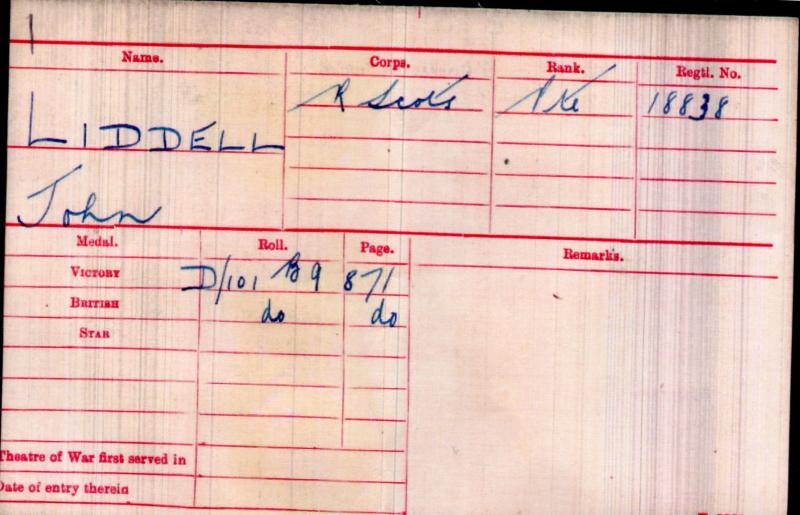 Name. Corps. Rank. Regtl. No.
R Scots Pte 18838
LIDDELL
John
Medal. Roll. Page. Remarks.
VICTORY D/101 B9 871
BRITISH do do
STAR
Theatre of War first served in
Date of entry therein